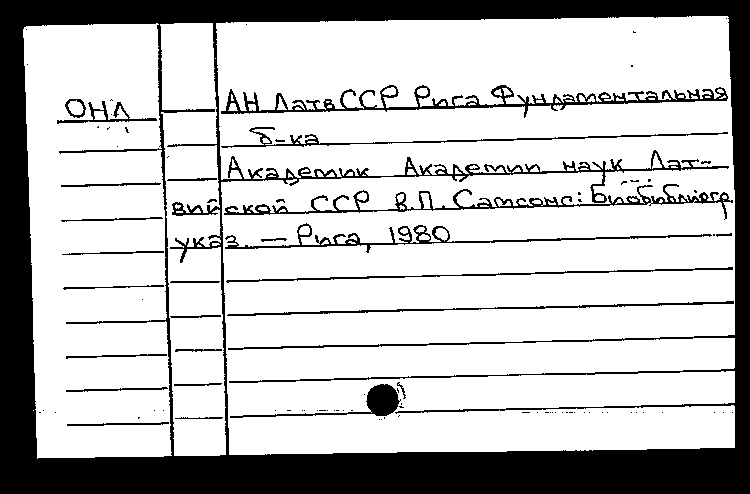 ОНЛ
АН ЛатвССР Рига Фундаментальная
б-ка
Академик Академии наук Лат-
вийской ССР В.П. Самсонс: Биобиблиогр.
указ. — Рига, 1980